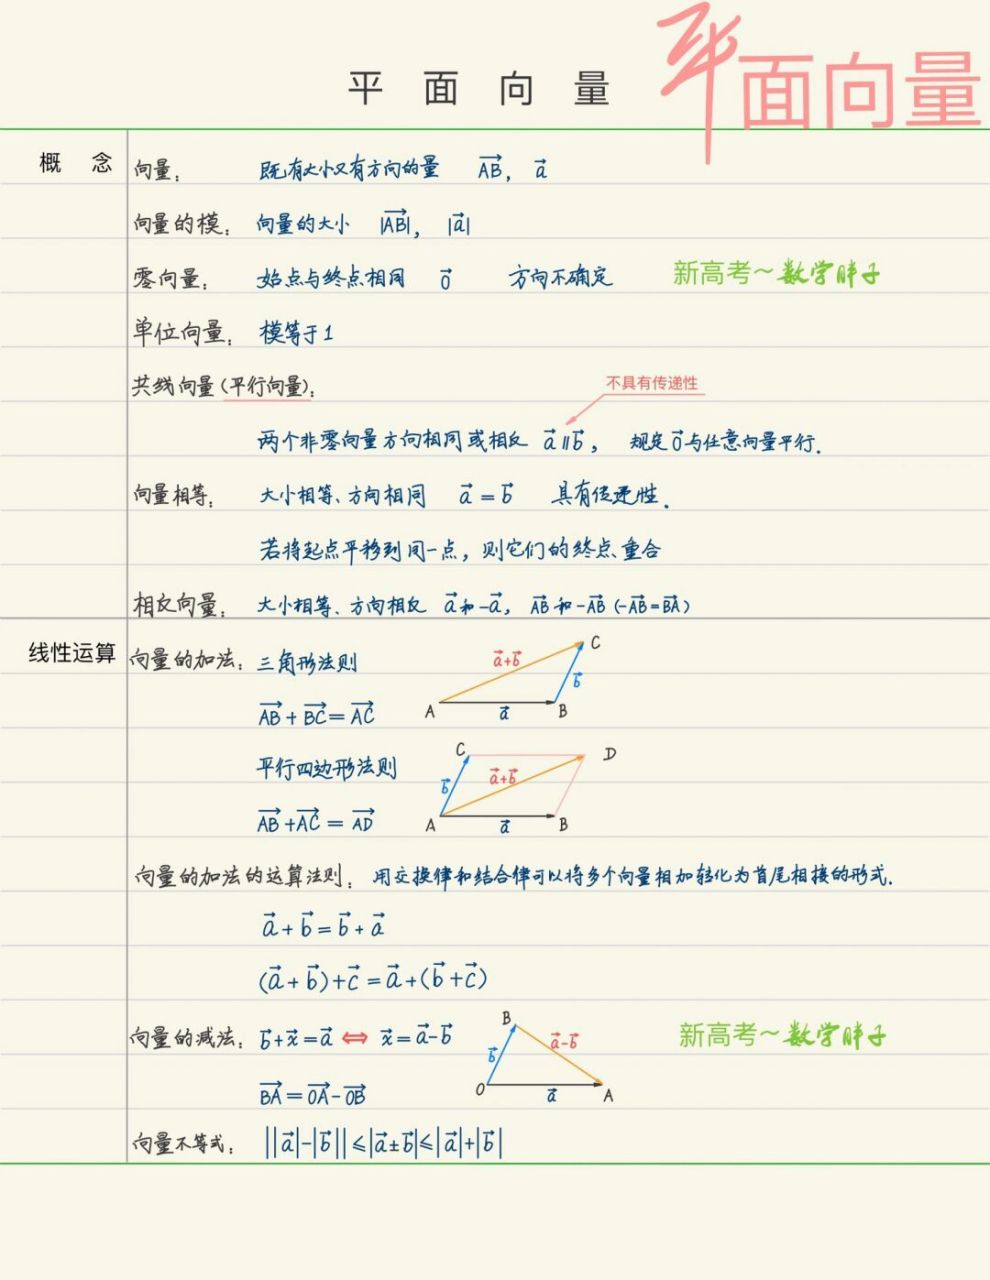 平面向量
平面向量
概念
向量： 既有大小又有方向的量 $\overrightarrow{AB}$， $\vec{a}$
向量的模： 向量的大小 $|\overrightarrow{AB}|$， $|\vec{a}|$
零向量： 始点与终点相同 $\vec{0}$ 方向不确定 新高考～数学胖子
单位向量： 模等于1
共线向量（平行向量）： 不具有传递性
两个非零向量方向相同或相反 $\vec{a}∥\vec{b}$， 规定$\vec{0}$与任意向量平行.
向量相等： 大小相等、方向相同 $\vec{a}=\vec{b}$ 具有传递性.
若将起点平移到同一点，则它们的终点重合
相反向量： 大小相等、方向相反 $\vec{a}$和$-\vec{a}$， $\overrightarrow{AB}$和$-\overrightarrow{AB}$ ($-\overrightarrow{AB}=\overrightarrow{BA}$)
线性运算
向量的加法： 三角形法则
$\overrightarrow{AB}+\overrightarrow{BC}=\overrightarrow{AC}$
A B C $\vec{a}$ $\vec{b}$ $\vec{a}+\vec{b}$
平行四边形法则
$\overrightarrow{AB}+\overrightarrow{AC}=\overrightarrow{AD}$
A B C D $\vec{a}$ $\vec{b}$ $\vec{a}+\vec{b}$
向量的加法的运算法则： 用交换律和结合律可以将多个向量相加转化为首尾相接的形式.
$\vec{a}+\vec{b}=\vec{b}+\vec{a}$
$(\vec{a}+\vec{b})+\vec{c}=\vec{a}+(\vec{b}+\vec{c})$
向量的减法： $\vec{b}+\vec{x}=\vec{a}$ ⇔ $\vec{x}=\vec{a}-\vec{b}$ 新高考～数学胖子
$\overrightarrow{BA}=\overrightarrow{OA}-\overrightarrow{OB}$
O A B $\vec{a}$ $\vec{b}$ $\vec{a}-\vec{b}$
向量不等式： $||\vec{a}|-|\vec{b}||≤|\vec{a}±\vec{b}|≤|\vec{a}|+|\vec{b}|$